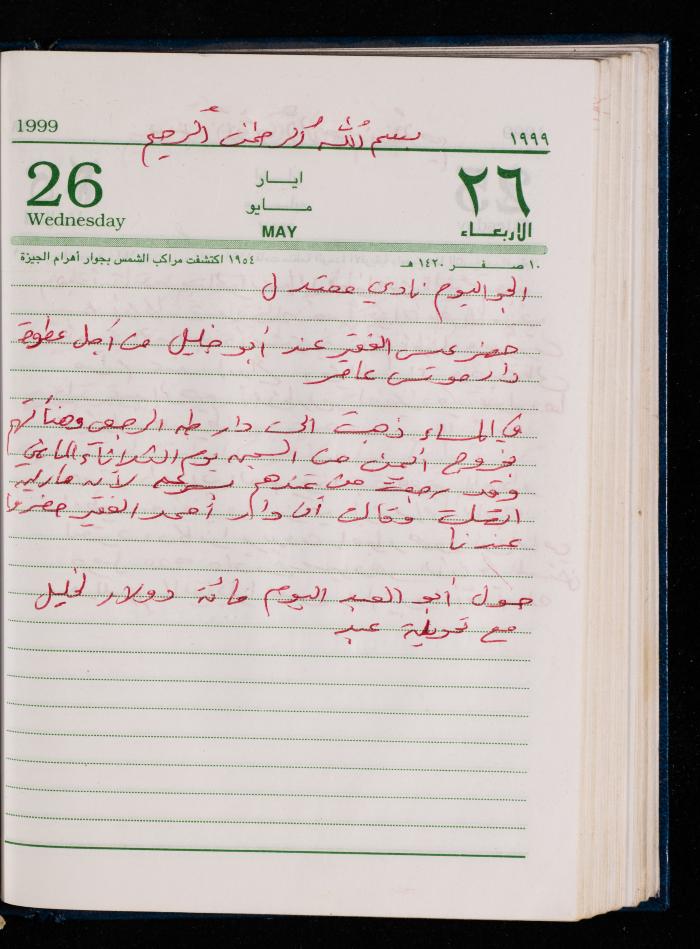 بسم الله الرحمن الرحيم
1999
١٩٩٩
26
Wednesday
ايار
مايو
MAY
٢٦
الاربعاء
١٠ صفر ١٤٢٠ هـ
١٩٥٤ اكتشفت مراكب الشمس بجوار أهرام الجيزة
الجو اليوم نادي معتدل
حضر عيسى الفقير عند أبو خليل من أجل عطوة
دار موسى عامر
في المساء ذهبت الى دار طه الرجعي وهنأتهم
بخروج أيمن من السجن يوم الثلاثاء الماضي
وقد رجعت من عندهم بسرعة لأنه
اتصلت وقالت أن دار أحمد الفقير حضروا
عندنا
حول أبو العبد اليوم مائة دولار لخليل
مع تحويلة عبد